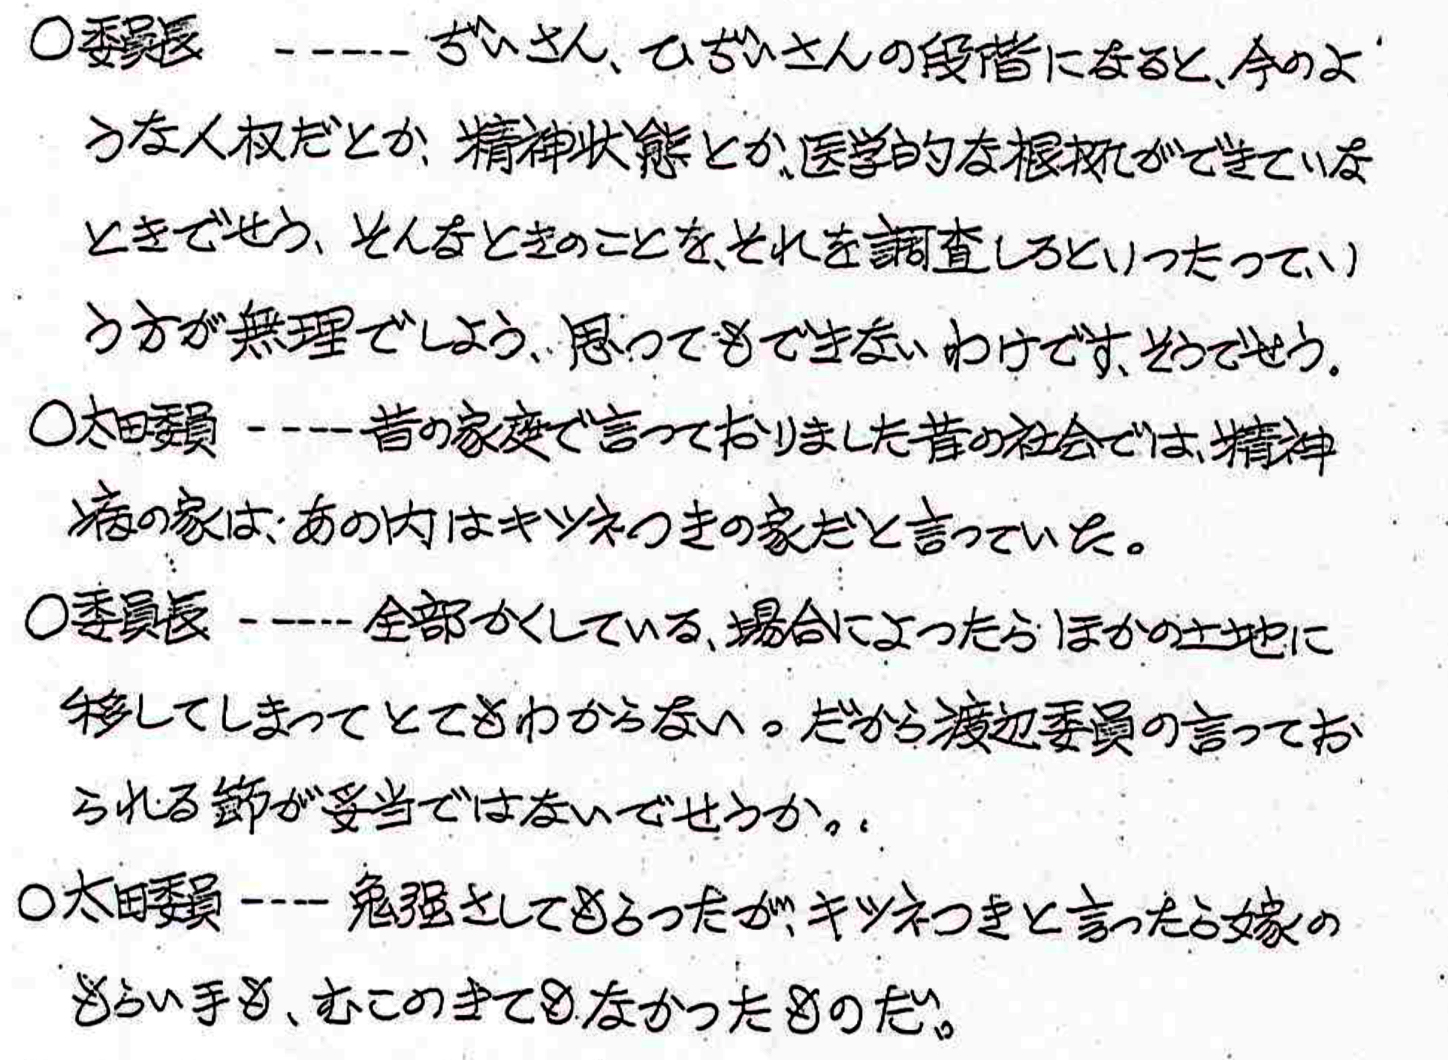 ○委員長 ----- ぢいさん、ひぢいさんの段階になると、今のよ
うな人权だとか、精神状態とか、医学的な根拠ができていな
ときでせう、そんなときのことを、それを調査しろといつたつてい
う方が無理でしよう、思つてもできないわけです、そうでせう。
○太田委員 ----- 昔の家庭で言つておりました昔の社会では、精神
病の家は、あの内はキツネつきの家だと言つていた。
○委員長 ----- 全部かくしている、場合によつたらほかの土地に
移してしまつてとてもわからない。だから渡辺委員の言つてお
られる節が妥当ではないでせうか。
○太田委員 ---- 勉強さしてもらつたが、キツネつきと言つたら嫁の
もらい手も、むこのきてもなかつたものだい。